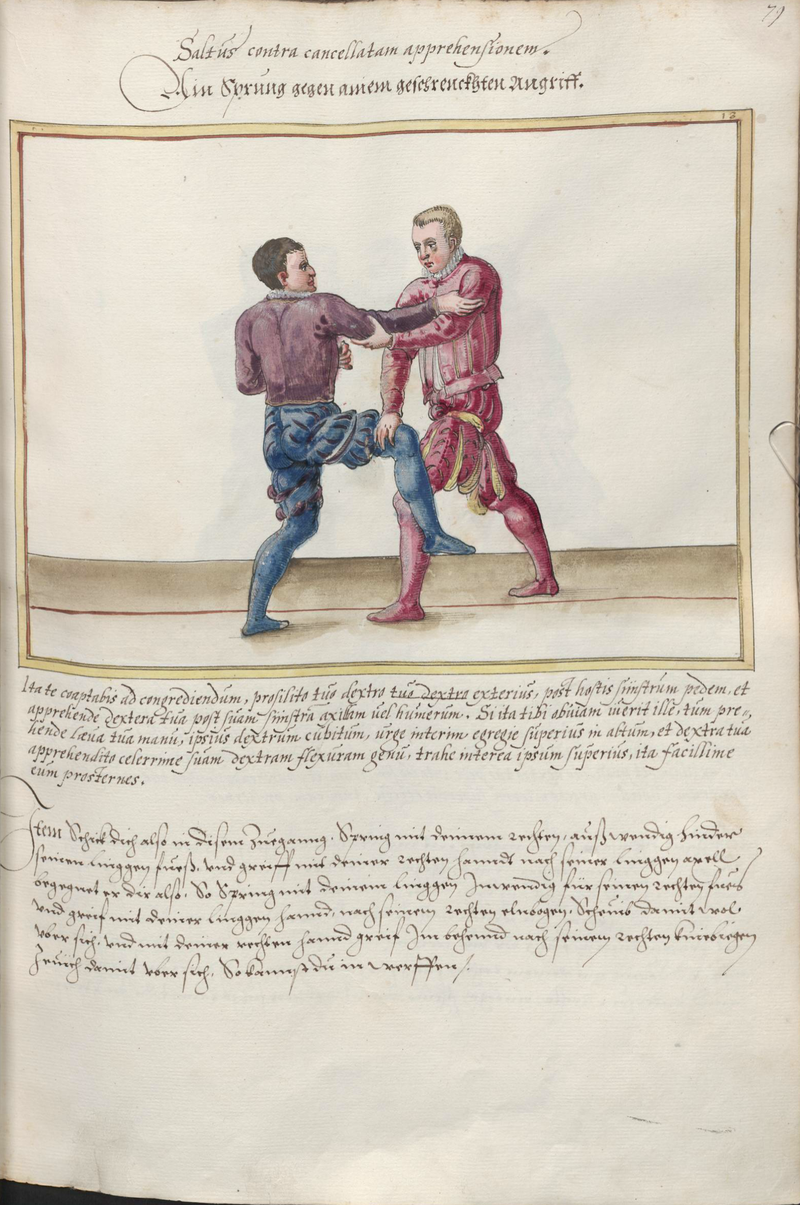 79
Saltus contra cancellatam apprehensionem.
Ain Sprung gegen ainem geschrenckhten Angriff.
12
Ita te coaptabis ad congrediendum, prosilito tuo dextro tuo dextro exterius, post hostis sinistrum pedem, et
apprehende dextera tua post suam sinistram axillam uel humerum. Si ita tibi obuiam iuerit ille, tum pre=
hende laeua tua manu, ipsius dextrum cubitum, urge interim egregie superius in altum, et dextra tua
apprehendito celerrime suam dextram flexuram genu, trahe interea ipsum superius, ita facillime
eum prosternes.
Item Schick dich also in disem Zueganng. Spring mit deinnem rechten, außwendig hinder
seinen linggen fueß, vnd greiff mit deiner rechten hanndt nach seiner linggen axell
begegnet er dir also, So Spring mit deinem linggen Inwendig für seinen rechten fues
vnd greif mit deiner linggen hannd, nach seinem rechten elnbogen, Scheub damit wol
vber sich, vnd mit deiner rechten hannd greif Im behennd nach seinem rechten kniebiegen
Zeuch damit vber sich, So kannst du in werffen.